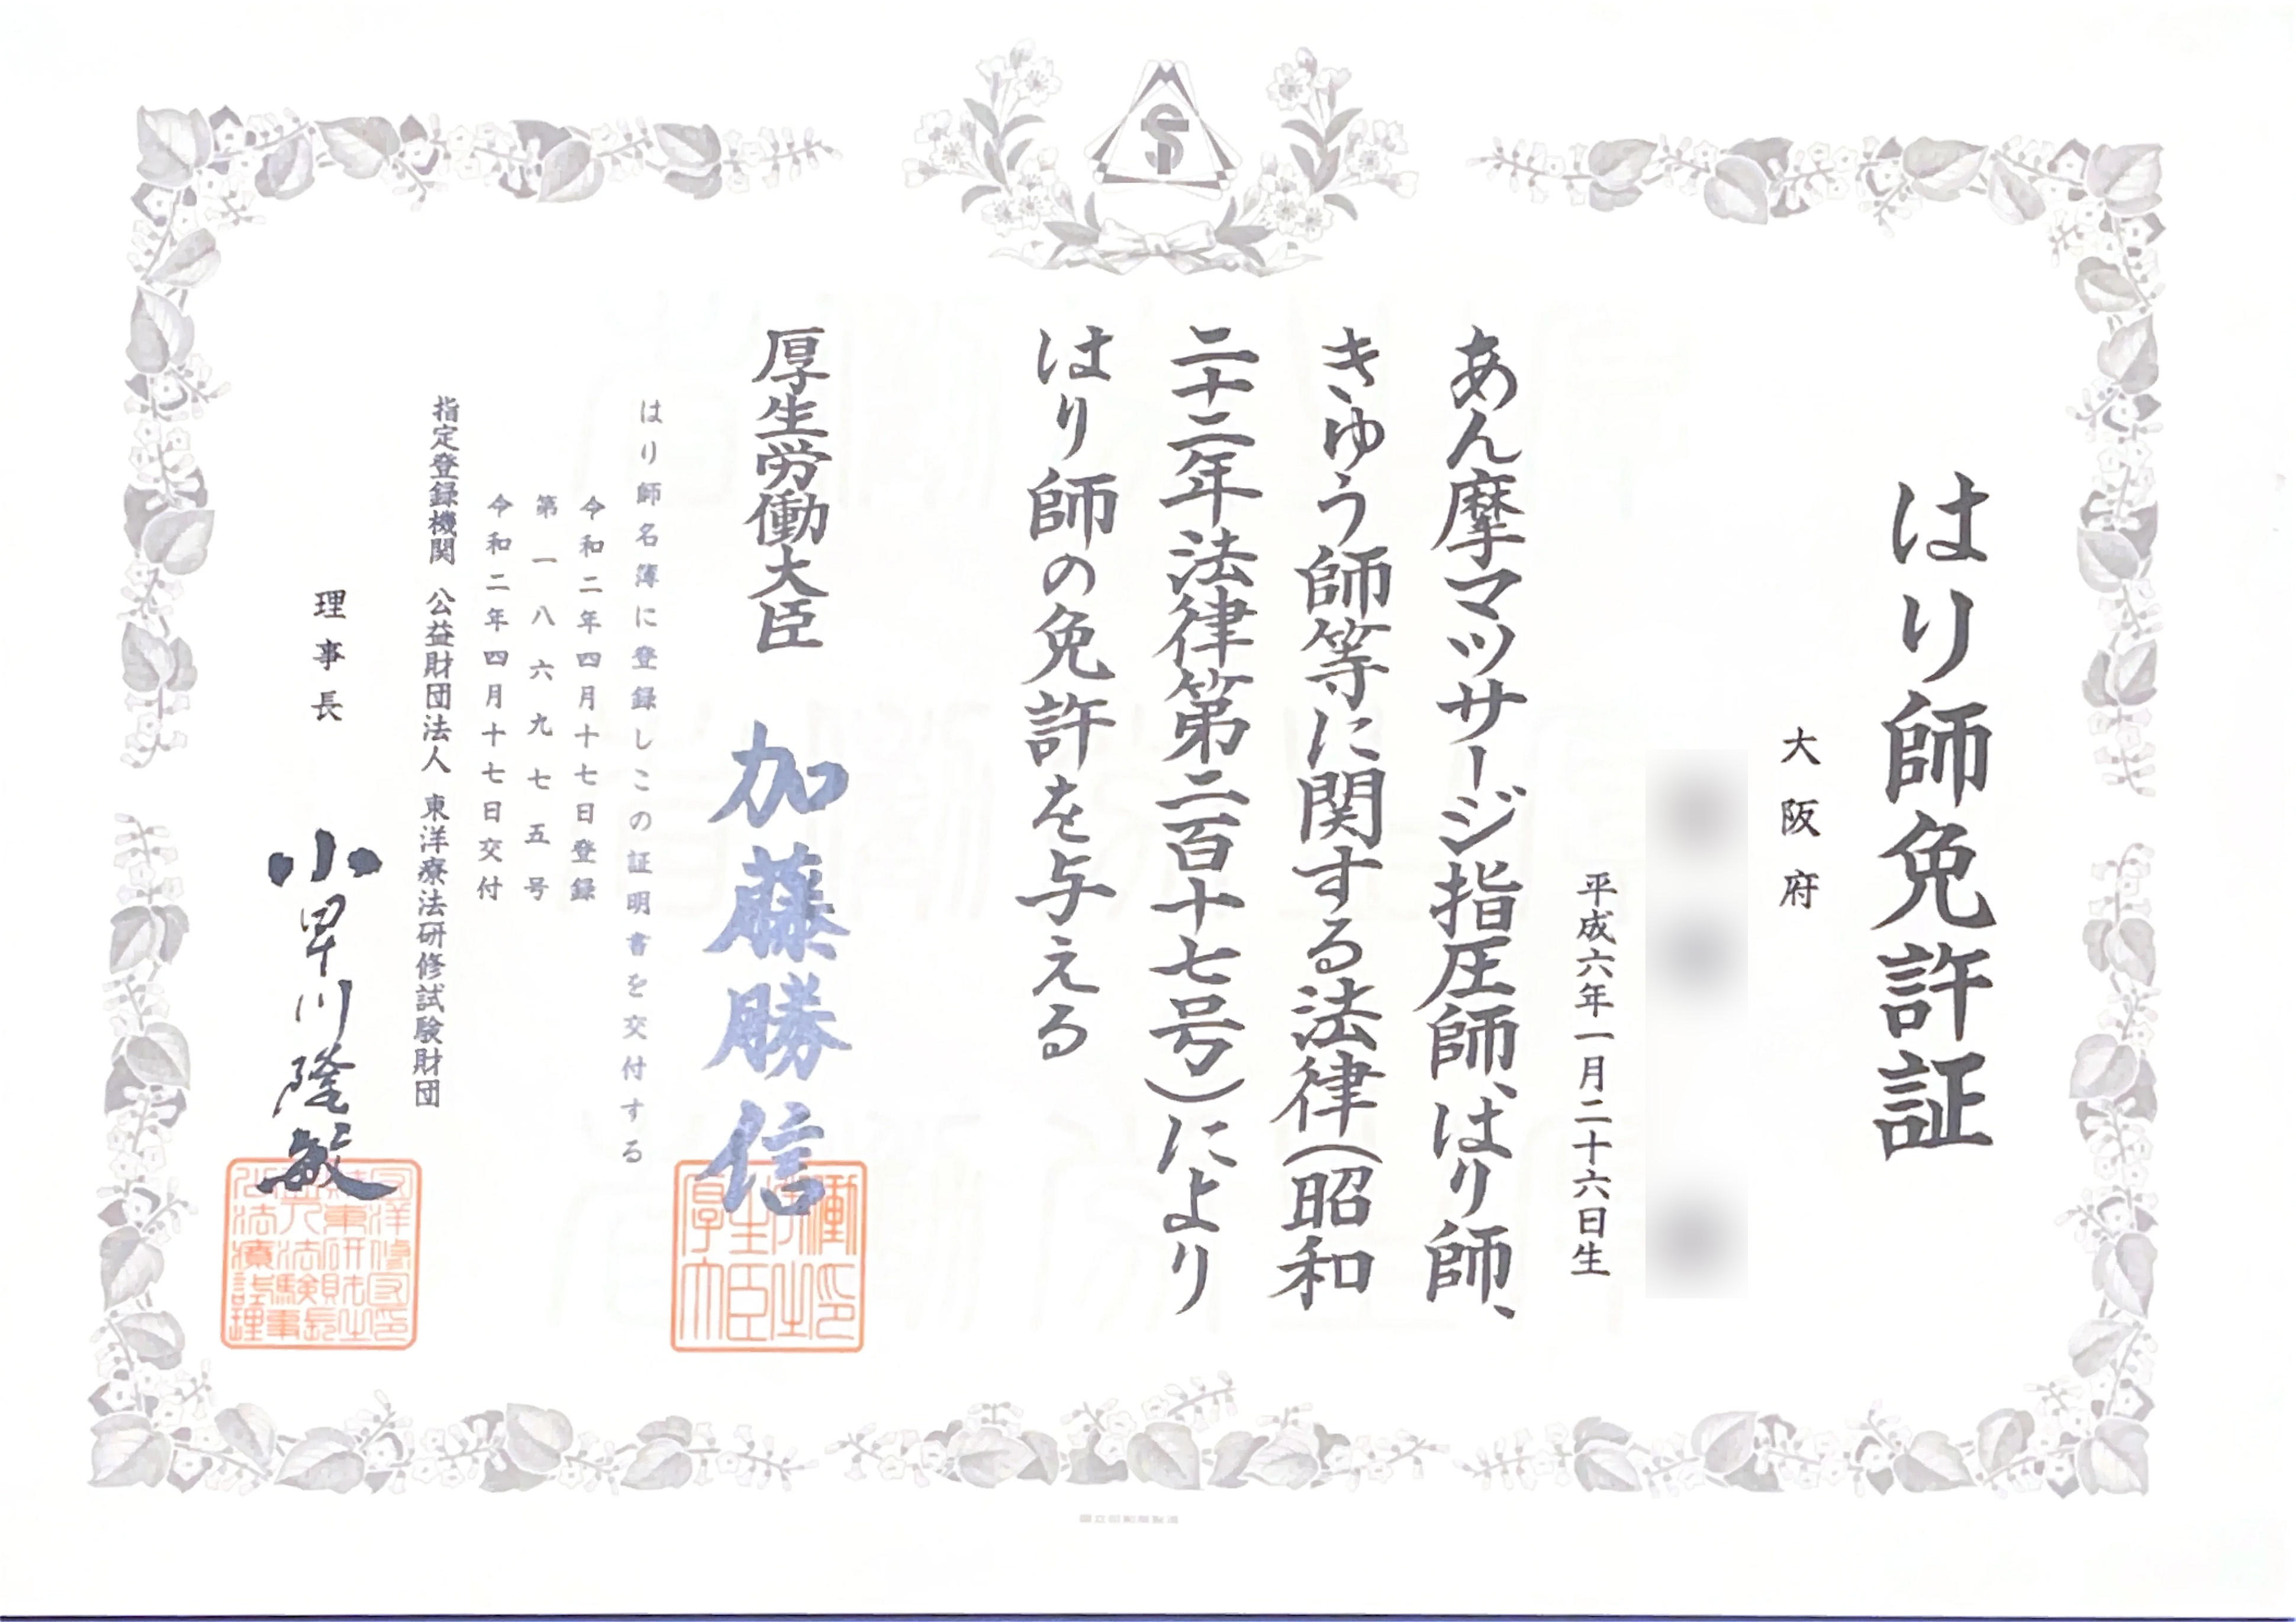 はり師免許証
大阪府
平成六年一月二十六日生
あん摩マツサージ指圧師、はり師、
きゆう師等に関する法律(昭和
二十二年法律第二百十七号)により
はり師の免許を与える
厚生労働大臣 加藤勝信
はり師名簿に登録しこの証明書を交付する
令和二年四月十七日登録
第一八六九七五号
令和二年四月十七日交付
指定登録機関 公益財団法人 東洋療法研修試験財団
理事長 小早川隆敏